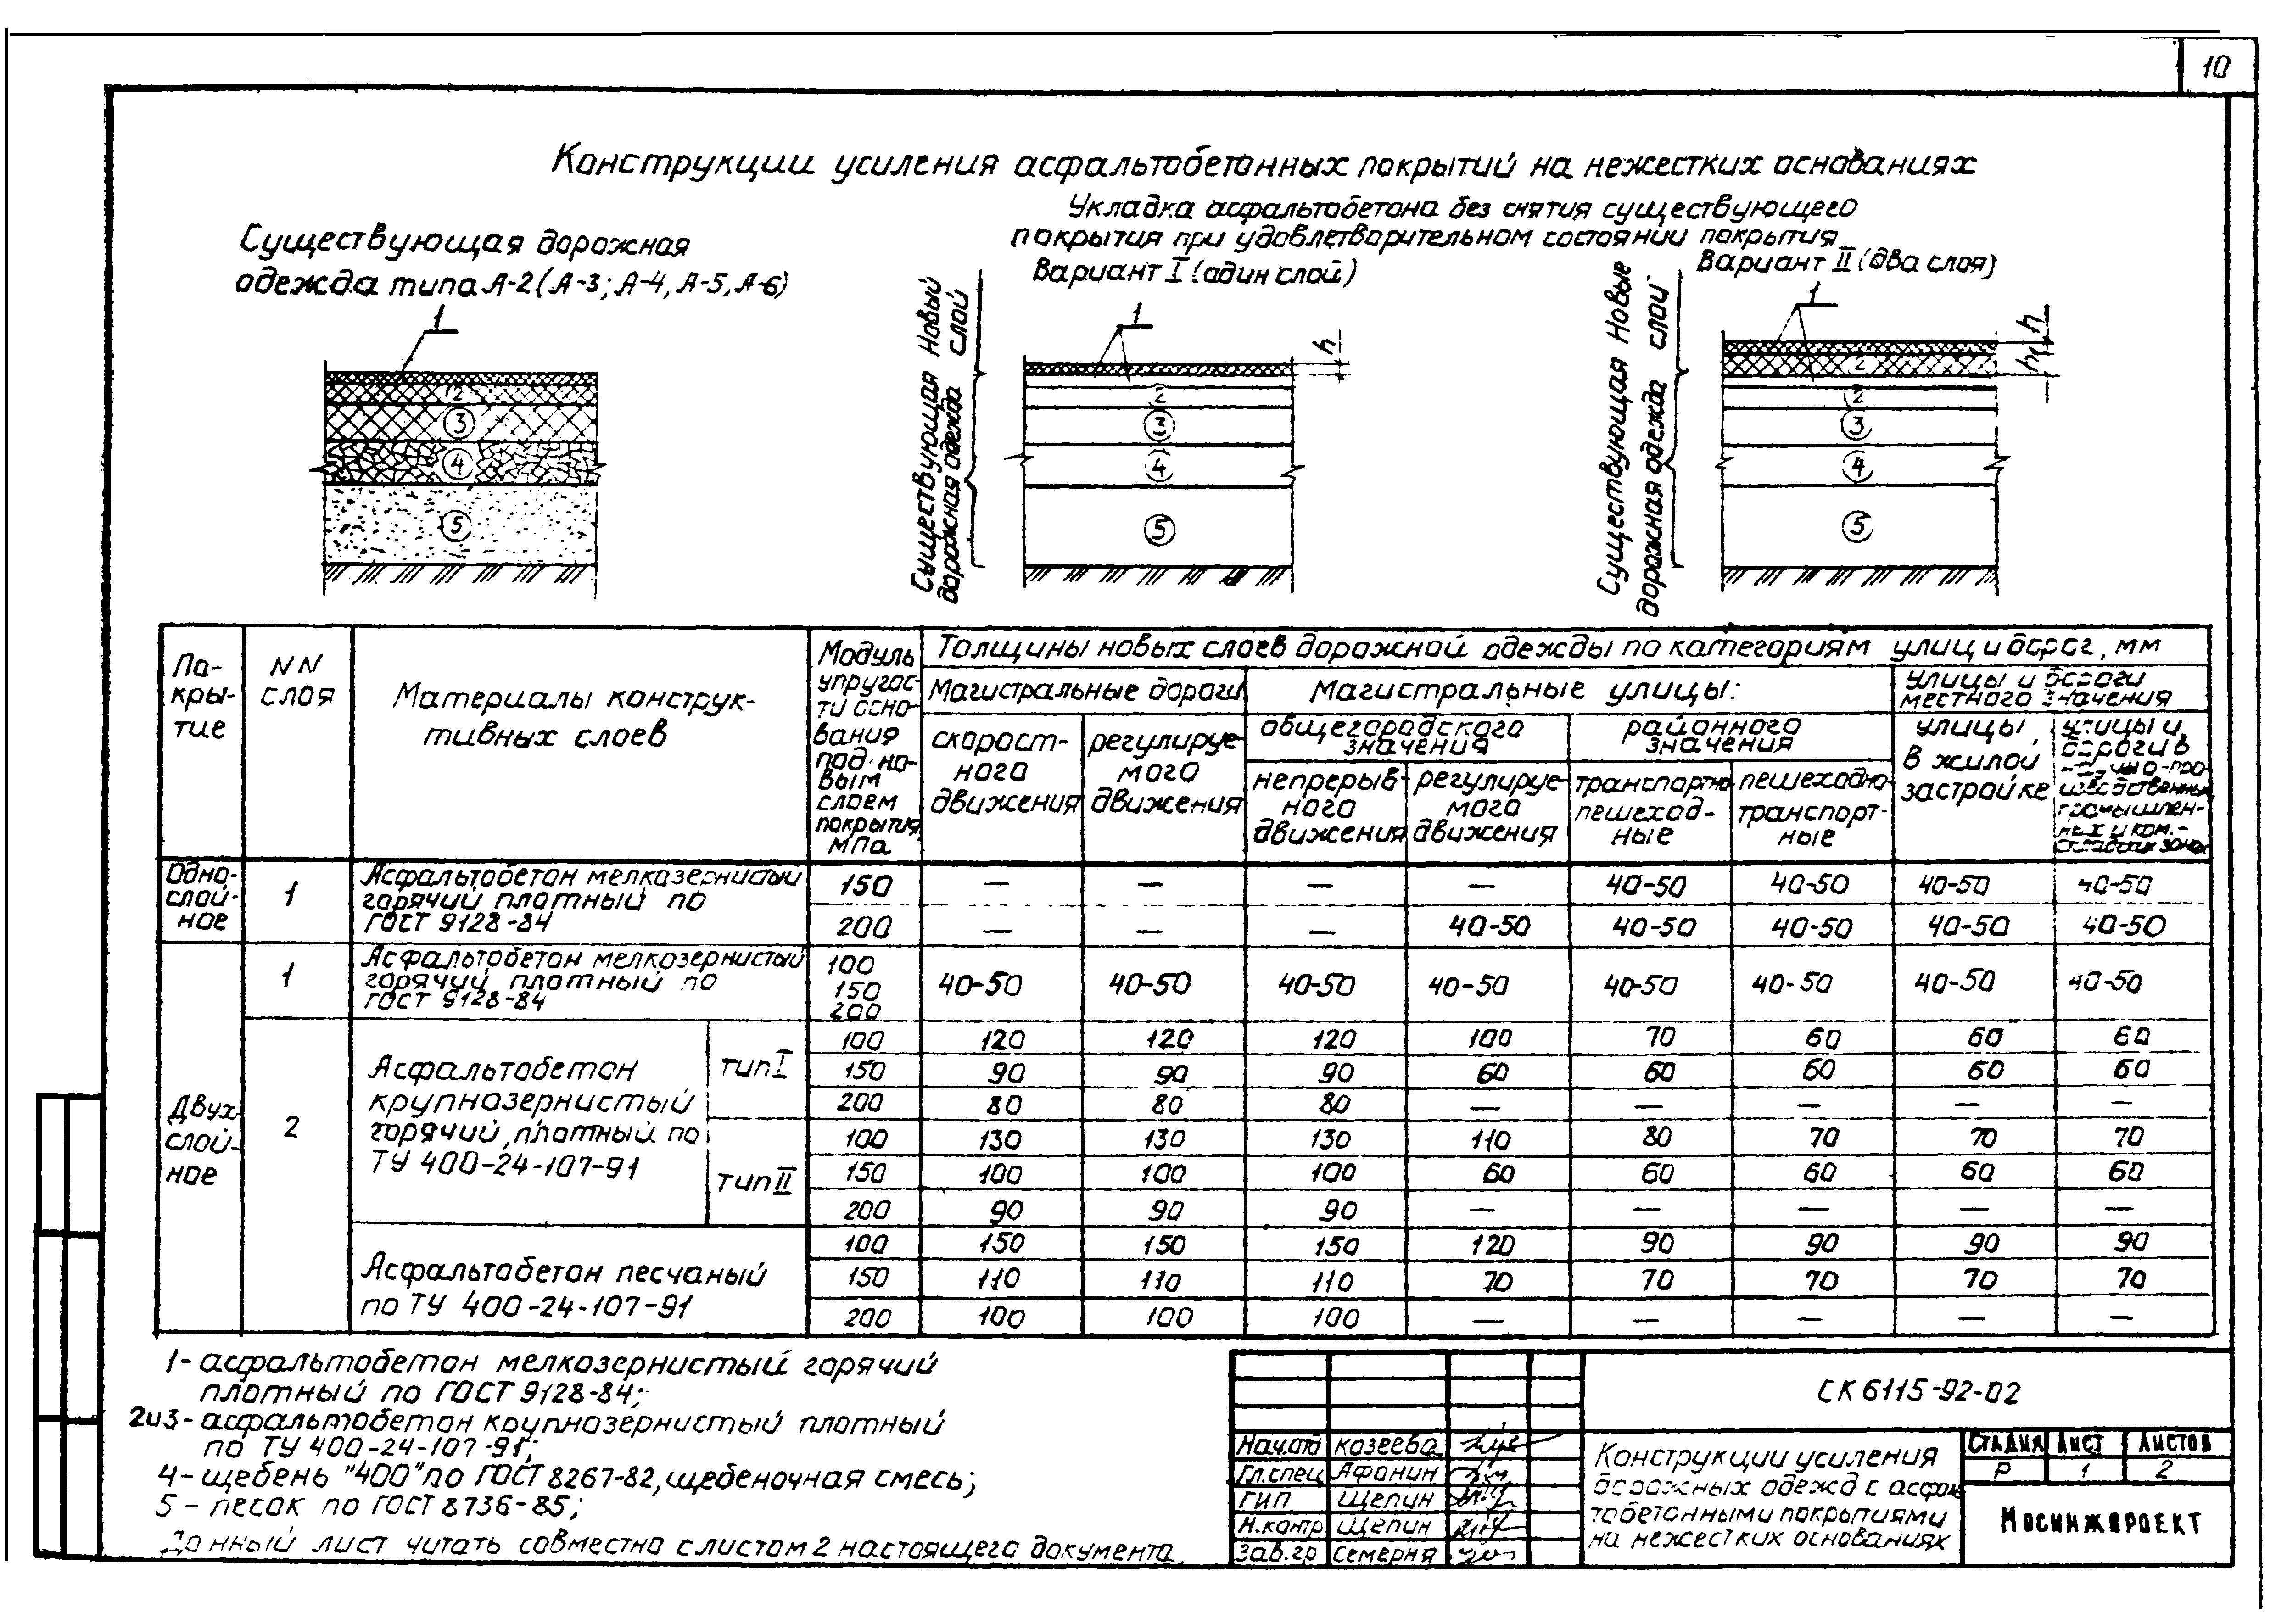 10
Конструкции усиления асфальтобетонных покрытий на нежестких основаниях
Существующая дорожная
одежда типа А-2 (А-3; А-4, А-5, А-6)
1
2
3
4
5
Укладка асфальтобетона без снятия существующего
покрытия при удовлетворительном состоянии покрытия
Вариант I (один слой)
Новый
слой
Существующая
дорожная одежда
1
h
2
3
4
5
Вариант II (два слоя)
Новые
слои
Существующая
дорожная одежда
1
h
h1
2
2
3
4
5
По-
кры-
тие
NN
слоя
Материалы конструк-
тивных слоев
Модуль
упругос-
ти осно-
вания
под но-
вым
слоем
покрытия,
МПа
Толщины новых слоев дорожной одежды по категориям улиц и дорог, мм
Магистральные дороги
Магистральные улицы:
Улицы и дороги
местного значения
скорост-
ного
движения
регулируе-
мого
движения
общегородского
значения
районного
значения
непрерыв-
ного
движения
регулируе-
мого
движения
транспортно-
пешеход-
ные
пешеходно-
транспорт-
ные
улицы
в жилой
застройке
улицы и
дороги в
промышлен-
ных и ком.-
складских зонах
Одно-
слой-
ное
1
Асфальтобетон мелкозернистый
горячий плотный по
ГОСТ 9128-84
150 — — — — 40-50 40-50 40-50 40-50
200 — — — 40-50 40-50 40-50 40-50 40-50
Двух-
слой-
ное
1
Асфальтобетон мелкозернистый
горячий плотный по
ГОСТ 9128-84
100
150
200
40-50 40-50 40-50 40-50 40-50 40-50 40-50 40-50
2
Асфальтобетон
крупнозернистый
горячий, плотный по
ТУ 400-24-107-91
тип I
100 120 120 120 100 70 60 60 60
150 90 90 90 60 60 60 60 60
200 80 80 80 — — — — —
тип II
100 130 130 130 110 80 70 70 70
150 100 100 100 60 60 60 60 60
200 90 90 90 — — — — —
Асфальтобетон песчаный
по ТУ 400-24-107-91
100 150 150 150 120 90 90 90 90
150 110 110 110 70 70 70 70 70
200 100 100 100 — — — — —
1- асфальтобетон мелкозернистый горячий
плотный по ГОСТ 9128-84;
2и3- асфальтобетон крупнозернистый плотный
по ТУ 400-24-107-91;
4- щебень "400" по ГОСТ 8267-82, щебеночная смесь;
5 - песок по ГОСТ 8736-85;
Данный лист читать совместно с листом 2 настоящего документа.
СК 6115-92-02
Нач.отд Козеева
Гл.спец Афонин
ГИП Щепин
Н.контр Щепин
Зав.гр Семерня
Конструкции усиления
дорожных одежд с асфаль
тобетонными покрытиями
на нежестких основаниях
Стадия Лист Листов
Р 1 2
Мосинжпроект